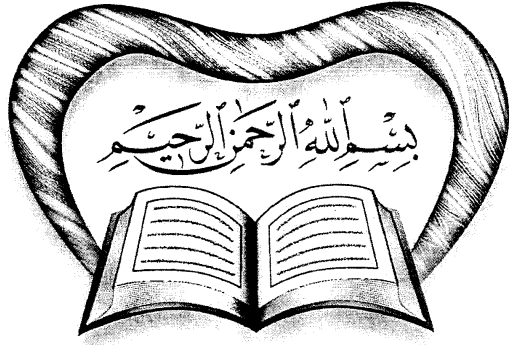 بِسْمِ اللهِ الرَّحْمَنِ الرَّحِيمِ